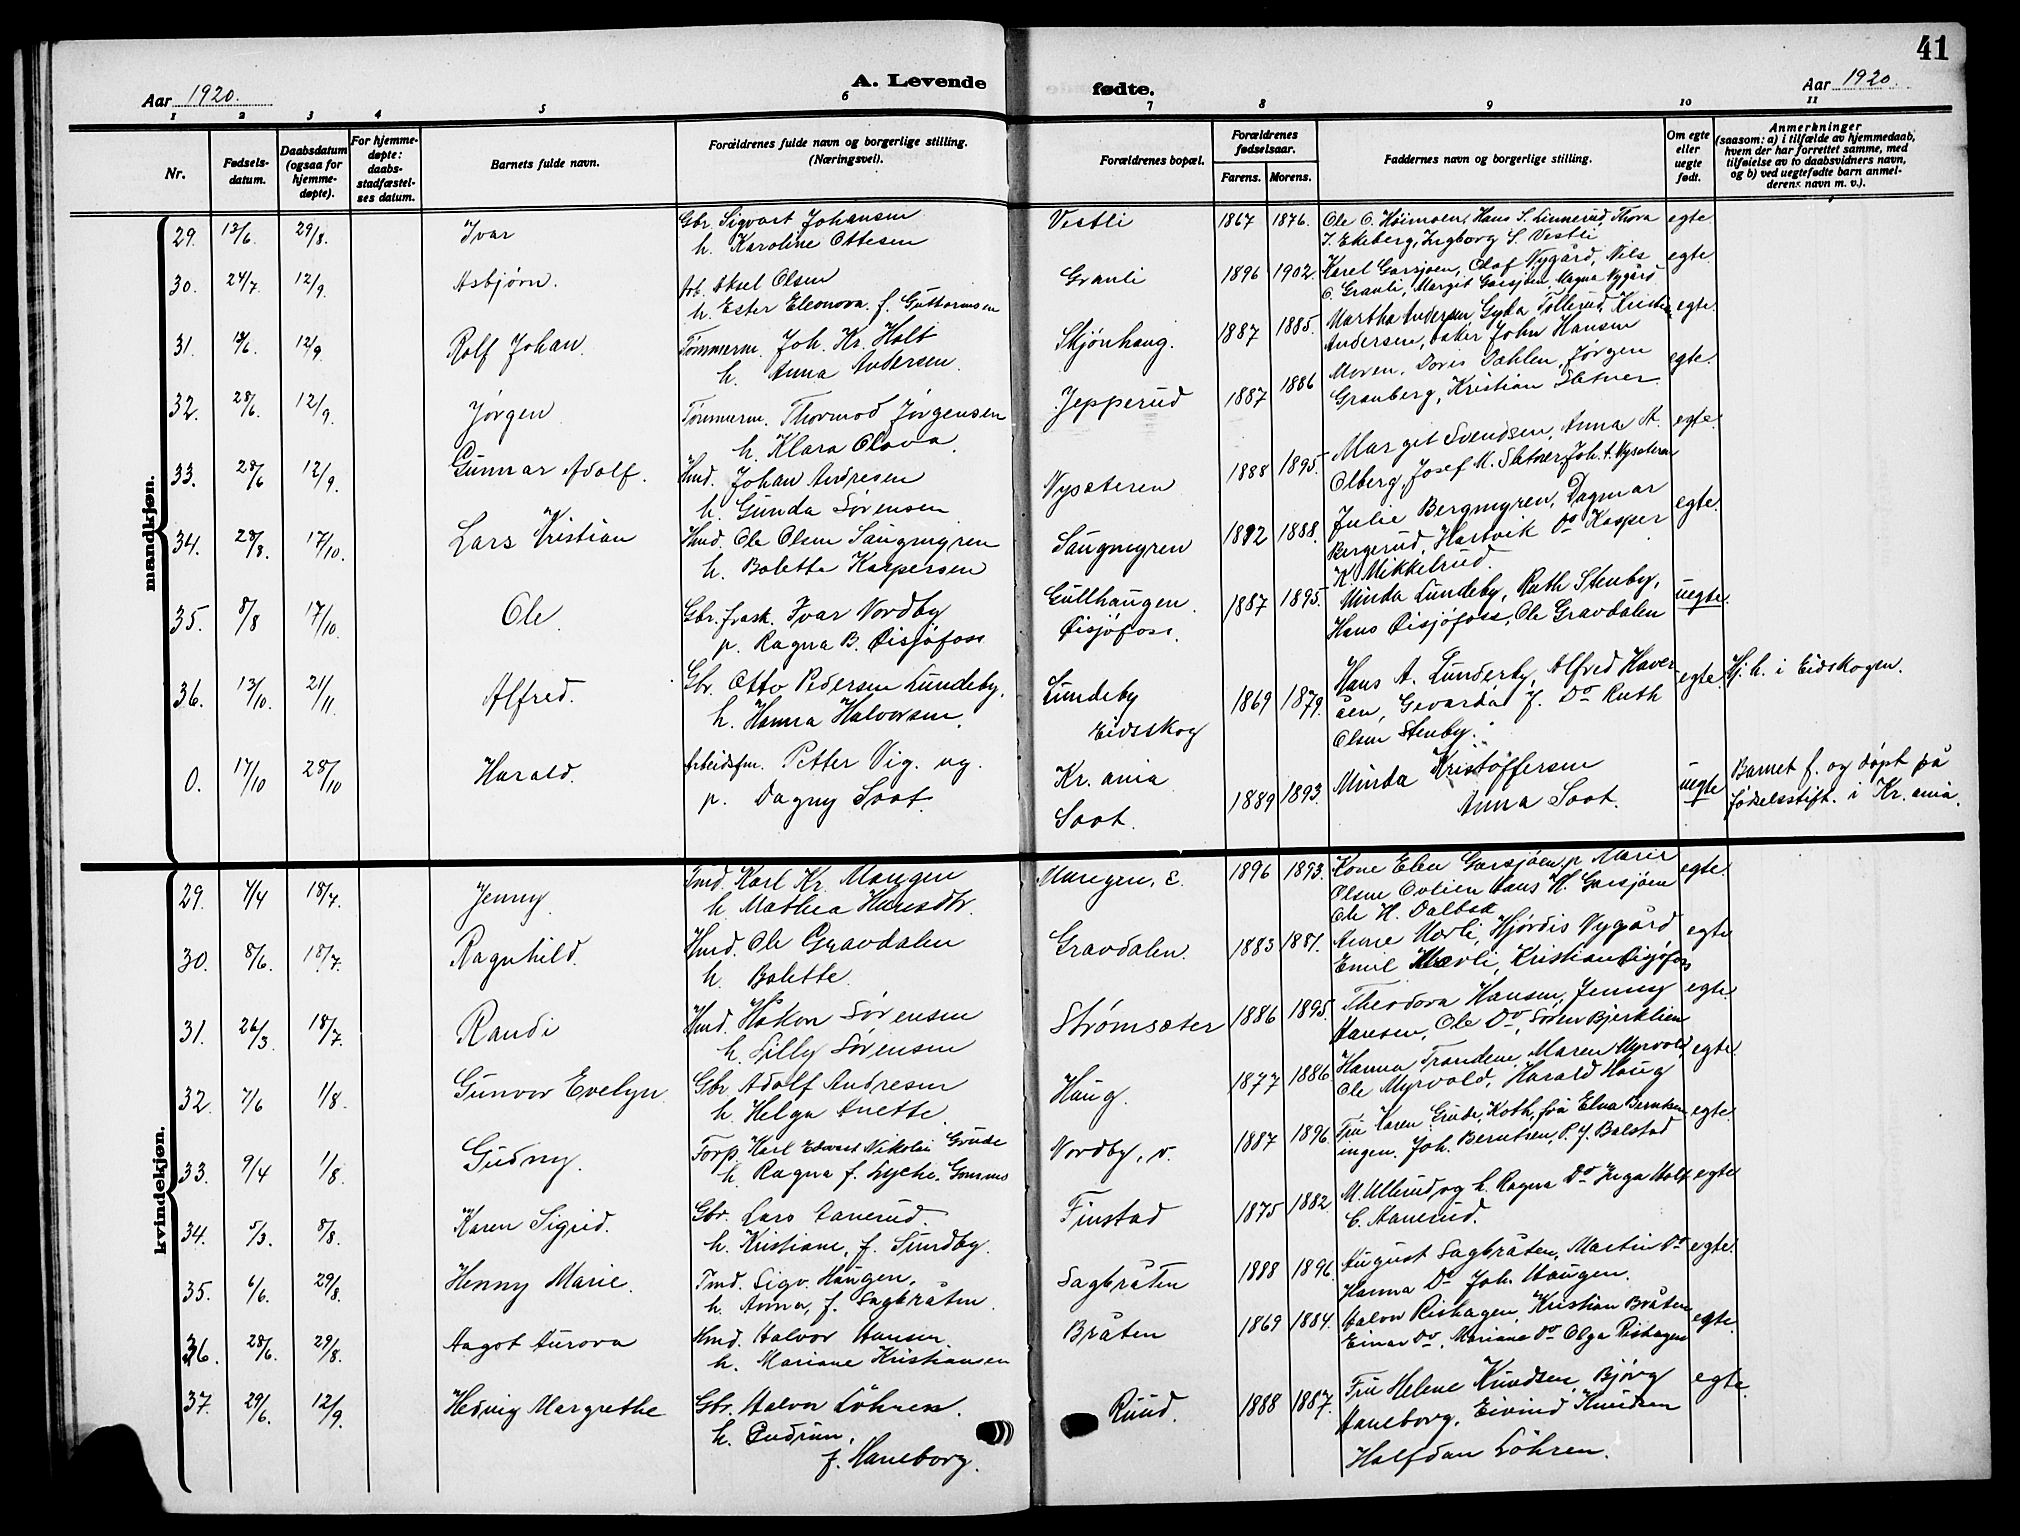 41
Aar 1920.
A. Levende
fødte.
Aar 1920.
1 2 3 4 5 6 7 8 9 10 11
Nr.
Fødsels-
datum.
Daabsdatum
(ogsaa for
hjemme-
døpte).
For hjemme-
døpte:
daabs-
stadfæstel-
ses datum.
Barnets fulde navn.
Forældrenes fulde navn og borgerlige stilling.
(Næringsvei).
Forældrenes bopæl.
Forældrenes
fødselsaar.
Farens. Morens.
Faddernes navn og borgerlige stilling.
Om egte
eller
uegte
født.
Anmerkninger
(saasom: a) i tilfælde av hjemmedaab,
hvem der har forrettet samme, med
tilføielse av to daabsvidners navn,
og b) ved uegtefødte barn anmel-
derens navn m. v.).
mandkjøn.
29. 13/6 29/8. Ivar Gbr. Sigvart Johansen Vestli 1867 1876. Ole O. Høimoen, Hans S. Linnerud, Thora egte.
h. Karoline Ottesen J. Ekeberg, Ingborg S. Vestli
30. 24/7 12/9. Asbjørn. Arb. Aksel Olsen Granli 1896 1902. Karel Garsjøen, Olaf Nygård, Nils egte.
h. Ester Eleonora f. Guttormsen O. Granli, Margit Garsjøen, Magna Nygård
31. 12/9 Rolf Johan. Tømmerm. Joh. Kr. Holt Skjønhaug. 1887 1885. Martha Andersen Gyda Tollerud, egte.
h. Anna Andersen. Andersen, John Hansen
32. 28/6. 12/9. Jørgen Tømmerm. Thormod Jørgensen Jepperud 1887 1886 Moren, Doris Dahlen, Jørgen egte.
h. Klara Olava. Granberg, Kristian Slatner.
33. 28/6 12/9. Gunnar Adolf. Hmd. Johan Andresen Nysæteren 1888 1895. Margit Svendsen, Anna A. egte.
h. Gunda Sørensen Olberg, Josef M. Slatner, Joh. A. Nysæteren
34. 28/8. 17/10. Lars Kristian Hmd. Ole Olsen Saugmyren Saugmyren 1882 1888. Julie Bergmyren, Dagmar egte.
h. Bolette Kaspersen Bergerud, Hartvik Do Kasper
K. Mikkelrud.
35. 8/8 17/10. Ole Gbr. frask. Ivar Nordby Gullhaugen. 1887 1895. Minda Lundeby, Ruth Stenby, uegte.
p. Ragna B. Øisjøfoss Øisjøfoss. Hans Øisjøfoss, Ole Gravdalen
36. 13/10. 21/11. Alfred. Gbr. Otto Pedersen Lundeby. Lundeby 1869 1879. Hans A. Lunderby, Alfred Haver- egte. Hj. h. i Eidskogen.
h. Hanna Halvorsen. Eidsskog åen, Gevarda J. Do Ruth
Olsen Stenby.
0. 17/10 28/10 Harald. Arbeidsfm. Petter Vig. ug. Kr. ania 1889 1893. Minda Kristoffersen uegte Barnet f. og døpt på
p. Dagny Soot Soot. Anna Soot. fødselsstift. i Kr. ania.
kvindekjøn.
29. 4/4 18/7. Jenny. Tmd. Karl Kr. Mangen Mangen, ø. 1896 1893. Kone Elen Garsjøen, p Marie egte.
h. Mathea Hansdtr. Olsen Ovlien Hans H. Garsjøen
Ole H. Dalbak
30. 8/6. 18/7. Ragnhild. Hmd. Ole Gravdalen Gravdalen. 1883 1881. Anne Hovli, Hjørdis Nygård egte
h. Bolette. Emil Hovli, Kristian Øisjøfoss
31. 26/3 18/7. Randi Hmd. Håkon Sørensen Strømsæter 1886 1895. Theodora Hansen, Jenny egte.
h. Lilly Sørensen Hansen, Ole Do, Søren Bjerklien
32. 7/6 1/8. Gunvor Evelyn. Gbr. Adolf Andresen Haug. 1877 1886 Hanna Trandene, Maren Myrvold, egte.
h. Helga Anette. Ole Myrvold, Harald Haug
33. 9/4 1/8. Gudny. Forp. Karl Edvard Nikolai Grude Nordby, v. 1887 1896 Fru Karen Grude, Koth, frå Elna Berntsen, egte.
h. Ragna f. Lyche. ingen. Joh. Berntsen, P. J. Balstad
34. 5/3. 8/8. Karen Sigrid. Gbr. Lars Aanerud. Finstad 1875 1882 M. Ullerud og h. Ragna Do Inga Holt egte
h. Kristiane, f. Sundby. C. Aanerud.
35. 6/6. 29/8. Henny Marie. Tmd. Sigv. Haugen, Sagbråten 1888 1896. August Sagbråten, Martin Do egte.
h. Anna, f. Sagbråten. Hanna Do Joh. Haugen.
36. 28/6. 29/8. Aagot Aurora Hmd. Halvor Hansen Bråten 1869 1884. Halvor Rishagen, Kristian Bråten egte.
h. Mariane Kristiansen Einar Do, Mariane Do Olga Rishagen
37. 29/6. 12/9. Hedvig Margrethe Gbr. Halvor Løhren. Ruud. 1888 1887. Fru Helene Knudsen, Bjørg egte.
h. Gudrun, Haneborg, Eivind Knudsen
f. Haneborg. Halfdan Løhren.